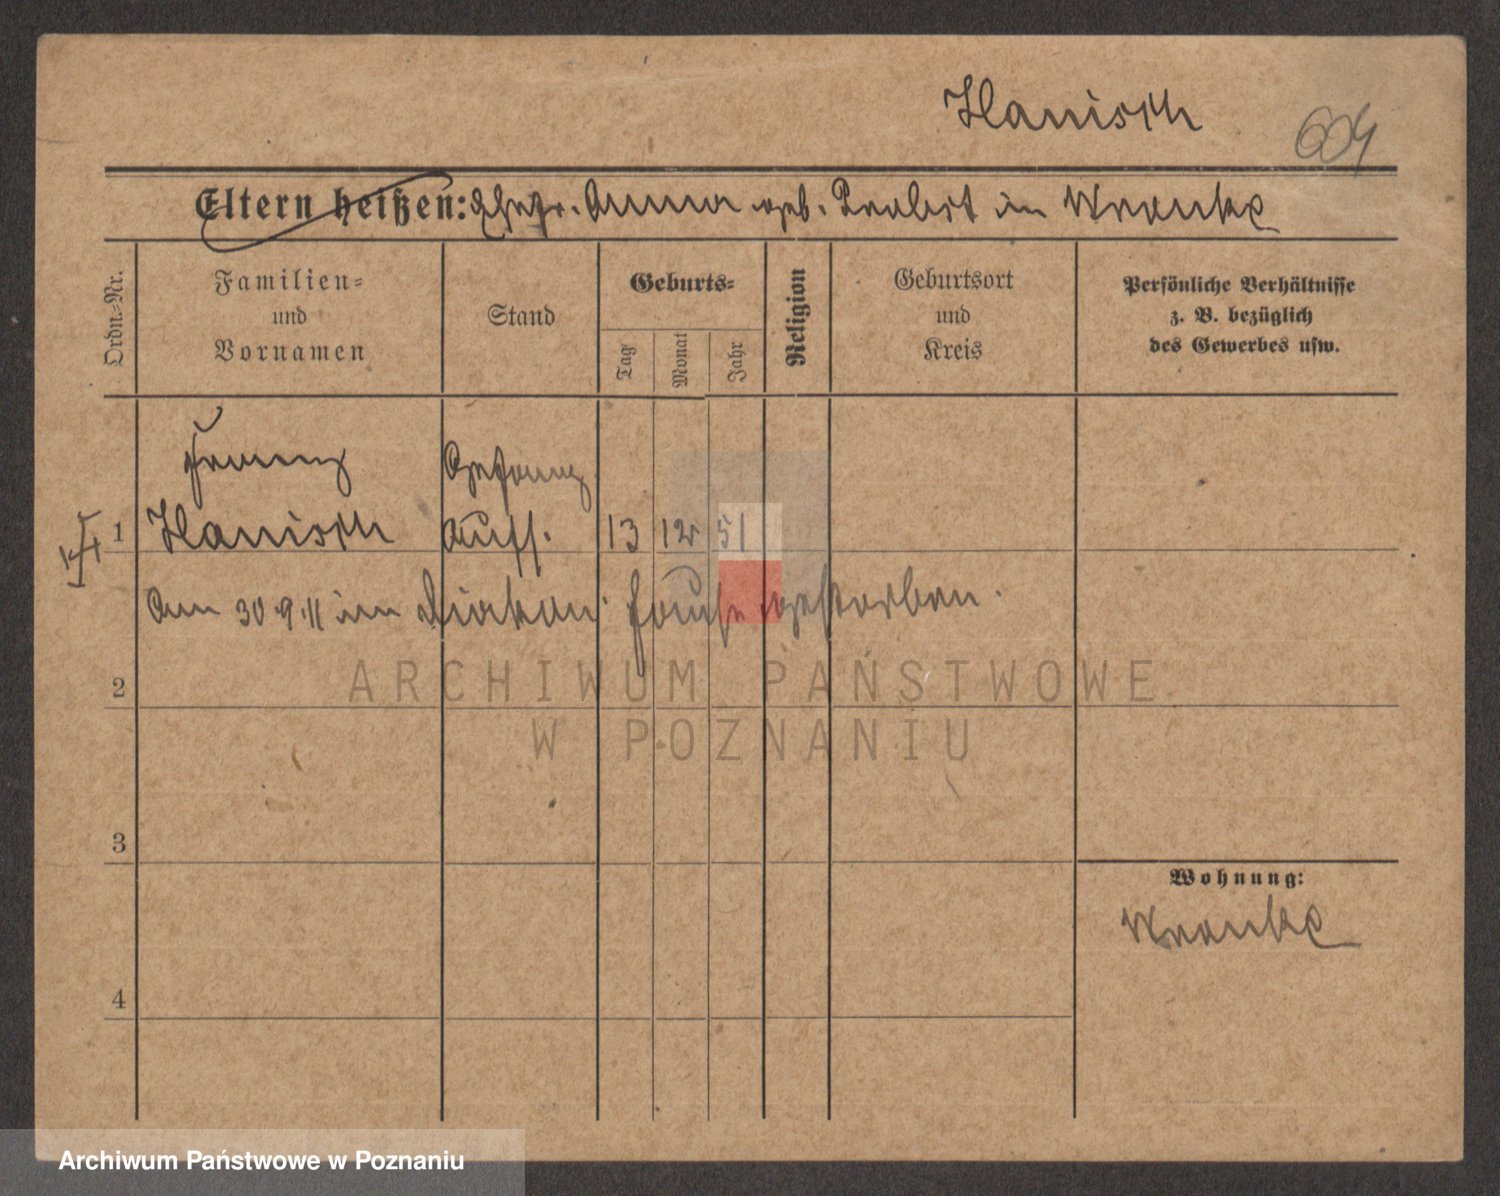 Hanisch
604
Eltern heißen: Ehefr. Anna geb. Probst in Wronke
Ordn.-Nr.
Familien-
und
Vornamen
Stand
Geburts-
Tag
Monat
Jahr
Religion
Geburtsort
und
Kreis
Persönliche Verhältnisse
z. B. bezüglich
des Gewerbes usw.
Franz Gefang.
1 Hanisch Auff. 13 12 51
Am 30.9.11 im Diakon. Hause gestorben.
2
ARCHIWUM PAŃSTWOWE
W POZNANIU
3
Wohnung:
Wronke
4
Archiwum Państwowe w Poznaniu